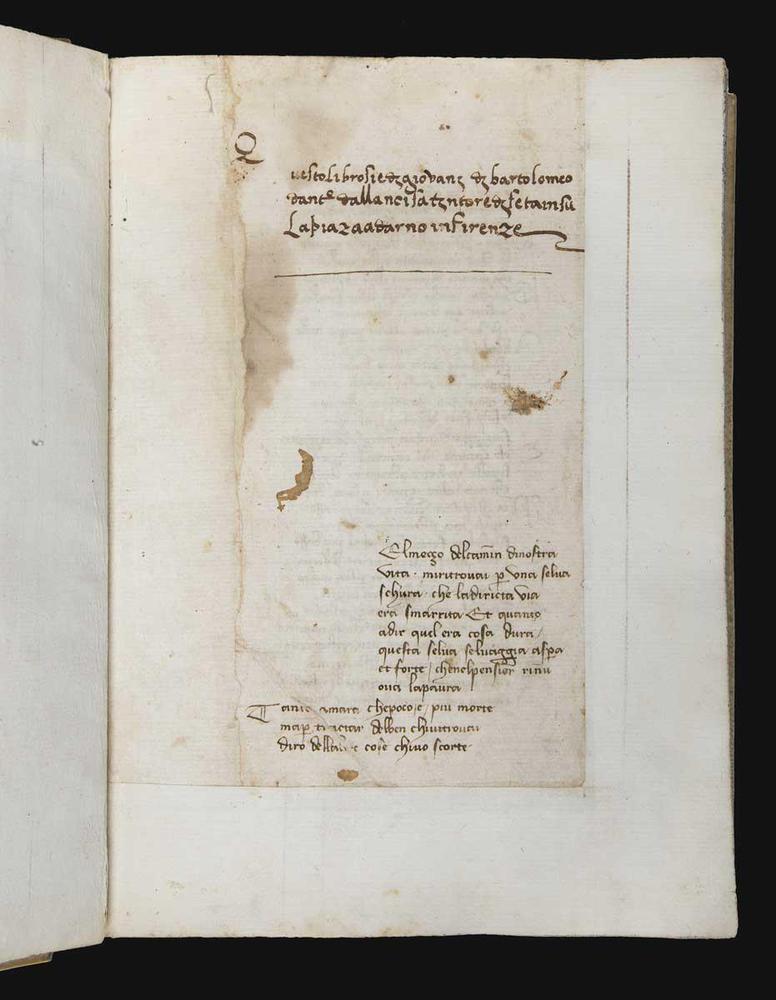 Q
uestolibrosiedegiovane de bartolomeo
dantº dallancisa tentore de seta insu
La piazaadarno infirenze
El mezzo delcamin dinostra
vita · miritrovai p una selva
schura · che ladiricta via
era smarrita Et quanto
adir qual era cosa dura /
questa selva selvaggia aspra
et forte / chenelpensier rinu
ova lapaura
Tanto amara chepocoe / piu morte
ma p tractar delben chivitrovai
diro dellaltre cose chivo scorte